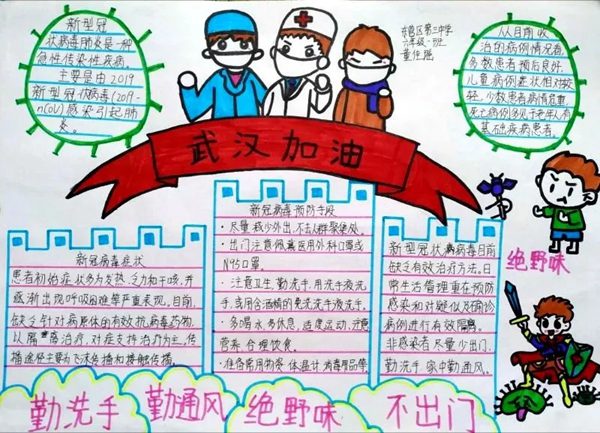 新型冠
状病毒肺炎是一种
急性传染性疾病。
主要是由2019
新型冠状病毒(2019-
nCoV)感染引起肺
炎。
区第三中学
六年级一班
从目前收
治的病例情况看,
多数患者预后良好,
儿童病例症状相对较
轻,少数患者病情危重,
死亡病例多见于老年人有
基础疾病患者。
武汉加油
新冠病毒症状
患者初始症状多为发热、乏力和干咳,并
逐渐出现呼吸困难等严重表现。目前,
缺乏针对病原体的有效抗病毒药物,
以隔离治疗、对症支持治疗为主,传
播途径主要为飞沫传播和接触传播。
新冠病毒预防手段
·尽量减少外出,不去人群聚集处。
·出门注意佩戴医用外科口罩或
N95口罩。
·注意卫生,勤洗手,用洗手液洗
手,或用含酒精的免洗洗手液洗手。
·多喝水,多休息,适度运动,注意
营养,合理饮食。
·准备常用物资,体温计,消毒用品等
新型冠状病毒目前
缺乏有效治疗方法,日
常生活管理重在预防
感染和对疑似及确诊
病例进行有效隔离。
非感染者尽量少出门,
勤洗手,家中勤通风。
绝野味
勤洗手
勤通风
绝野味
不出门